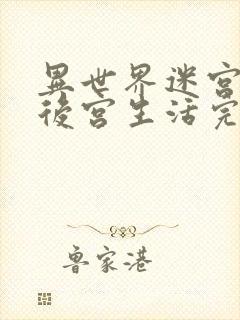 異世界迷宮
後宮生活完
鲁家港